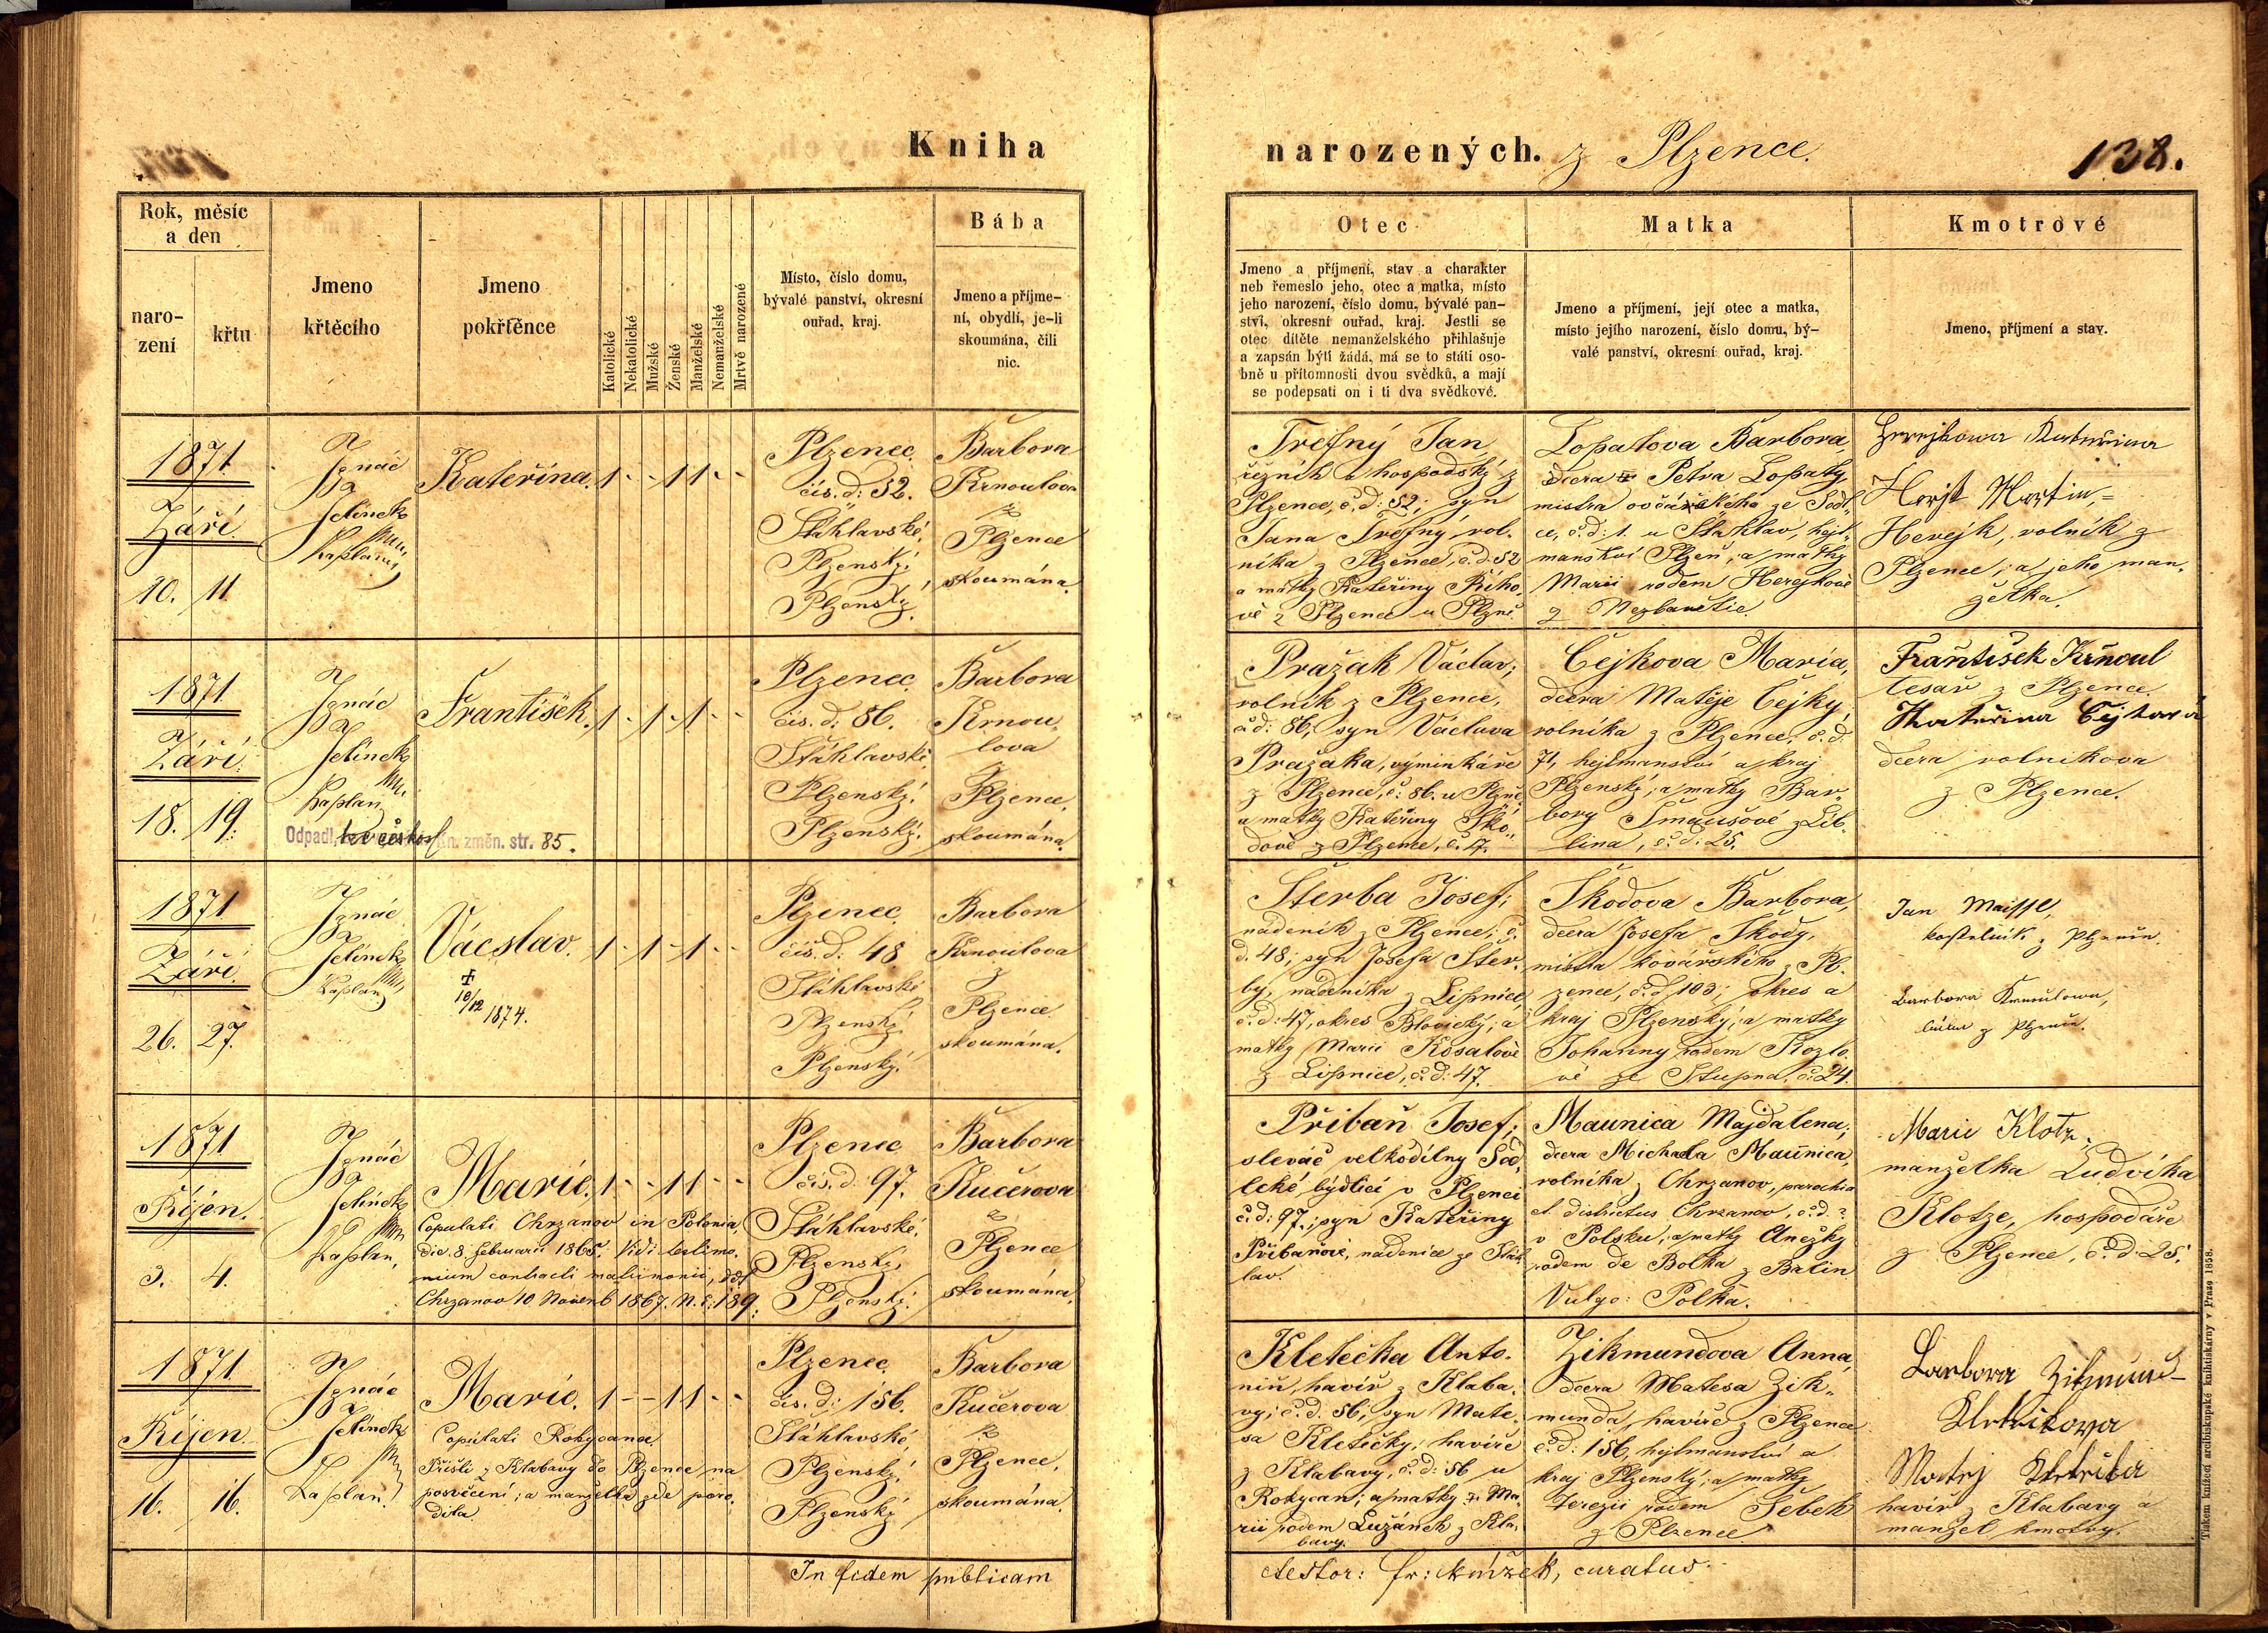 Kniha
narozených. z Plzence.
138.
Rok, měsíc
a den
naro-
zení
křtu
Jmeno
křtěcího
Jmeno
pokřtěnce
Katolické
Nekatolické
Mužské
Ženské
Manželské
Nemanželské
Mrtvě narozené
Místo, číslo domu,
bývalé panství, okresní
ouřad, kraj.
Bába
Jmeno a příjme-
ní, obydlí, je-li
skoumána, čili
nic.
Otec
Jmeno a příjmení, stav a charakter
neb řemeslo jeho, otec a matka, místo
jeho narození, číslo domu, bývalé pan-
ství, okresní ouřad, kraj. Jestli se
otec dítěte nemanželského přihlašuje
a zapsán býti žádá, má se to státi oso-
bně u přítomnosti dvou svědků, a mají
se podepsati on i ti dva svědkové.
Matka
Jmeno a příjmení, její otec a matka,
místo jejího narození, číslo domu, bý-
valé panství, okresní ouřad, kraj.
Kmotrové
Jmeno, příjmení a stav.
1871.
Září.
10. 11.
Ignác
Jelínek
Kaplan
Kateřina. 1 - - 1 1 - -
Plzenec
čís. d: 52.
Šťáhlavské,
Plzenský,
Plzenský.
Barbora
Krnoulova
z
Plzence
skoumána.
Trefný Jan
řezník a hospodský z
Plzence, č. d: 52; syn
Jana Trefný, rol-
níka z Plzence, č. d. 52
a matky Kateřiny Řího-
vé z Plzence u Plzně.
Lopatova Barbora,
dcera Petra Lopaty
mistra ovčáckého ze Sedl-
ce, č. d: 1. u Šťáhlav, hejt-
manství Plzeň, a matky
Marii rodem Herejkově
z Nezbavětic
Herejkowa Kateřina
Horst Martin,=
Herejk, rolník z
Plzence, a jeho man-
želka.
1871
Září.
18. 19.
Ignác
Jelínek
Kaplan
Odpadl, Kn. změn. str. 85.
František. 1 - 1 - 1 - -
Plzenec
čís. d: 86.
Šťáhlavské
Plzenský.
Plzenský.
Barbora
Krnou-
lova
Plzence.
skoumána.
Pražak Václav,
rolník z Plzence,
č. d: 86, syn Václava
Pražaka, výminkáře
z Plzence, č: 86. u Plzně,
a matky Kateřiny Ško-
dově z Plzence, č. 17.
Čejkova Maria,
dcera Matěje Čejky,
rolníka z Plzence, č. d.
71, hejtmanství a kraj
Plzenský; a matky Bar-
bory Šmausově z Lib-
lina, č. d: 25.
František Krnoul
tesař z Plzence.
Kateřina Cejkova
dcera rolníkova
z Plzence.
1871
Září.
26. 27.
Ignác
Jelínek
Kaplan
Vácslav. 1 - 1 - 1 - -
+
10/12 1874.
Plzenec
čís. d. 48
Šťáhlavské
Plzenský
Plzenský.
Barbora
Krnoulova
z
Plzence
skoumána.
Šterba Josef;
nádeník z Plzence, č.
d. 48; syn Josefa Šter-
by, nádeníka z Lipnice,
č. d: 47, okres Blovický; a
matky Marii Kosatově
z Lipnice, č. d: 47.
Škodova Barbora,
dcera Josefa Škody,
mistra kovářského z Pl-
zence, č. d. 103; okres a
kraj Plzenský; a matky
Johanny rodem Kozlo-
vé ze Stupna, č. 24.
Jan Maissl,
kostelník z Plzence.
Barbora Krnoulowa,
bába z Plzence.
1871
Říjen.
3. 4.
Ignác
Jelínek
Kaplan,
Marie. 1 - - 1 1 - -
Copulati Chrzanov in Polonia,
die 8. februarii 1865. Vidi testimo-
nium contracti matrimonii, ddt
Chrzanov 10 Novemb 1867. N. E: 189.
Plzenec
čís. d: 97.
Šťáhlavské,
Plzenský,
Plzenský.
Barbora
Kučerova
z
Plzence
skoumána.
Přibaň Josef;
slevač velkodílny Sed-
lcké, bydlící v Plzenci
č. d: 97.; syn Kateřiny
Přibaňové, nádenice ze Šťáh-
lav.
Maunica Majdalena;
dcera Michala Maunica,
rolníka z Chrzanov, parochia
et districtus Chrzanov, č. d. ?
v Polsku, a matky Anežky
rodem de Bolka z Balin
Vulgo: Polka.
Marie Klotz,
manželka Ludvíka
Klotze, hospodáře
z Plzence, č. d. 25.
1871
Říjen.
16. 16.
Ignác
Jelínek
Kaplan.
Marie. 1 - - 1 1 - -
Copulati Rokycana.
Přišli z Klabavy do Plzence na
posvěcení; a manželka zde poro-
dila
Plzenec
čís. d: 156.
Šťáhlavské,
Plzenský.
Plzenský
Barbora
Kučerova
z
Plzence,
skoumána.
Kletečka Anto-
nin, havíř z Klaba-
vy; č. d. 56, syn Mate-
sa Kletečky, havíře
z Klabavy, č. d: 56 u
Rokycan; a matky Ma-
rii rodem Lužánek z Kla-
bavy.
Zikmundova Anna,
dcera Matesa Zik-
munda, havíře z Plzence
č. d: 156, hejtmanství a
kraj Plzenský; a matky
Terezii rodem Šebek
z Plzence.
Barbora Zikmund-
Kletečkova
Matěj Kletečka
havíř z Klabavy a
manžel kmotry.
In fidem publicam
testor: Fr: Knížek, curatus
Tiskem knížecí arcibiskupské knihtiskárny v Praze 1858.